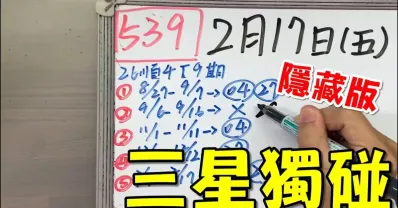 539 2月17日(五)
26順4下9期
隱藏版
① 8/27-9/7→04 27
② 9/6-9/16→X
③ 11/1-11/11→04
④
⑤
三星獨碰